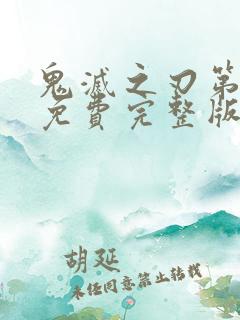 鬼滅之刃第
免費完整版
胡延
未经同意禁止转载